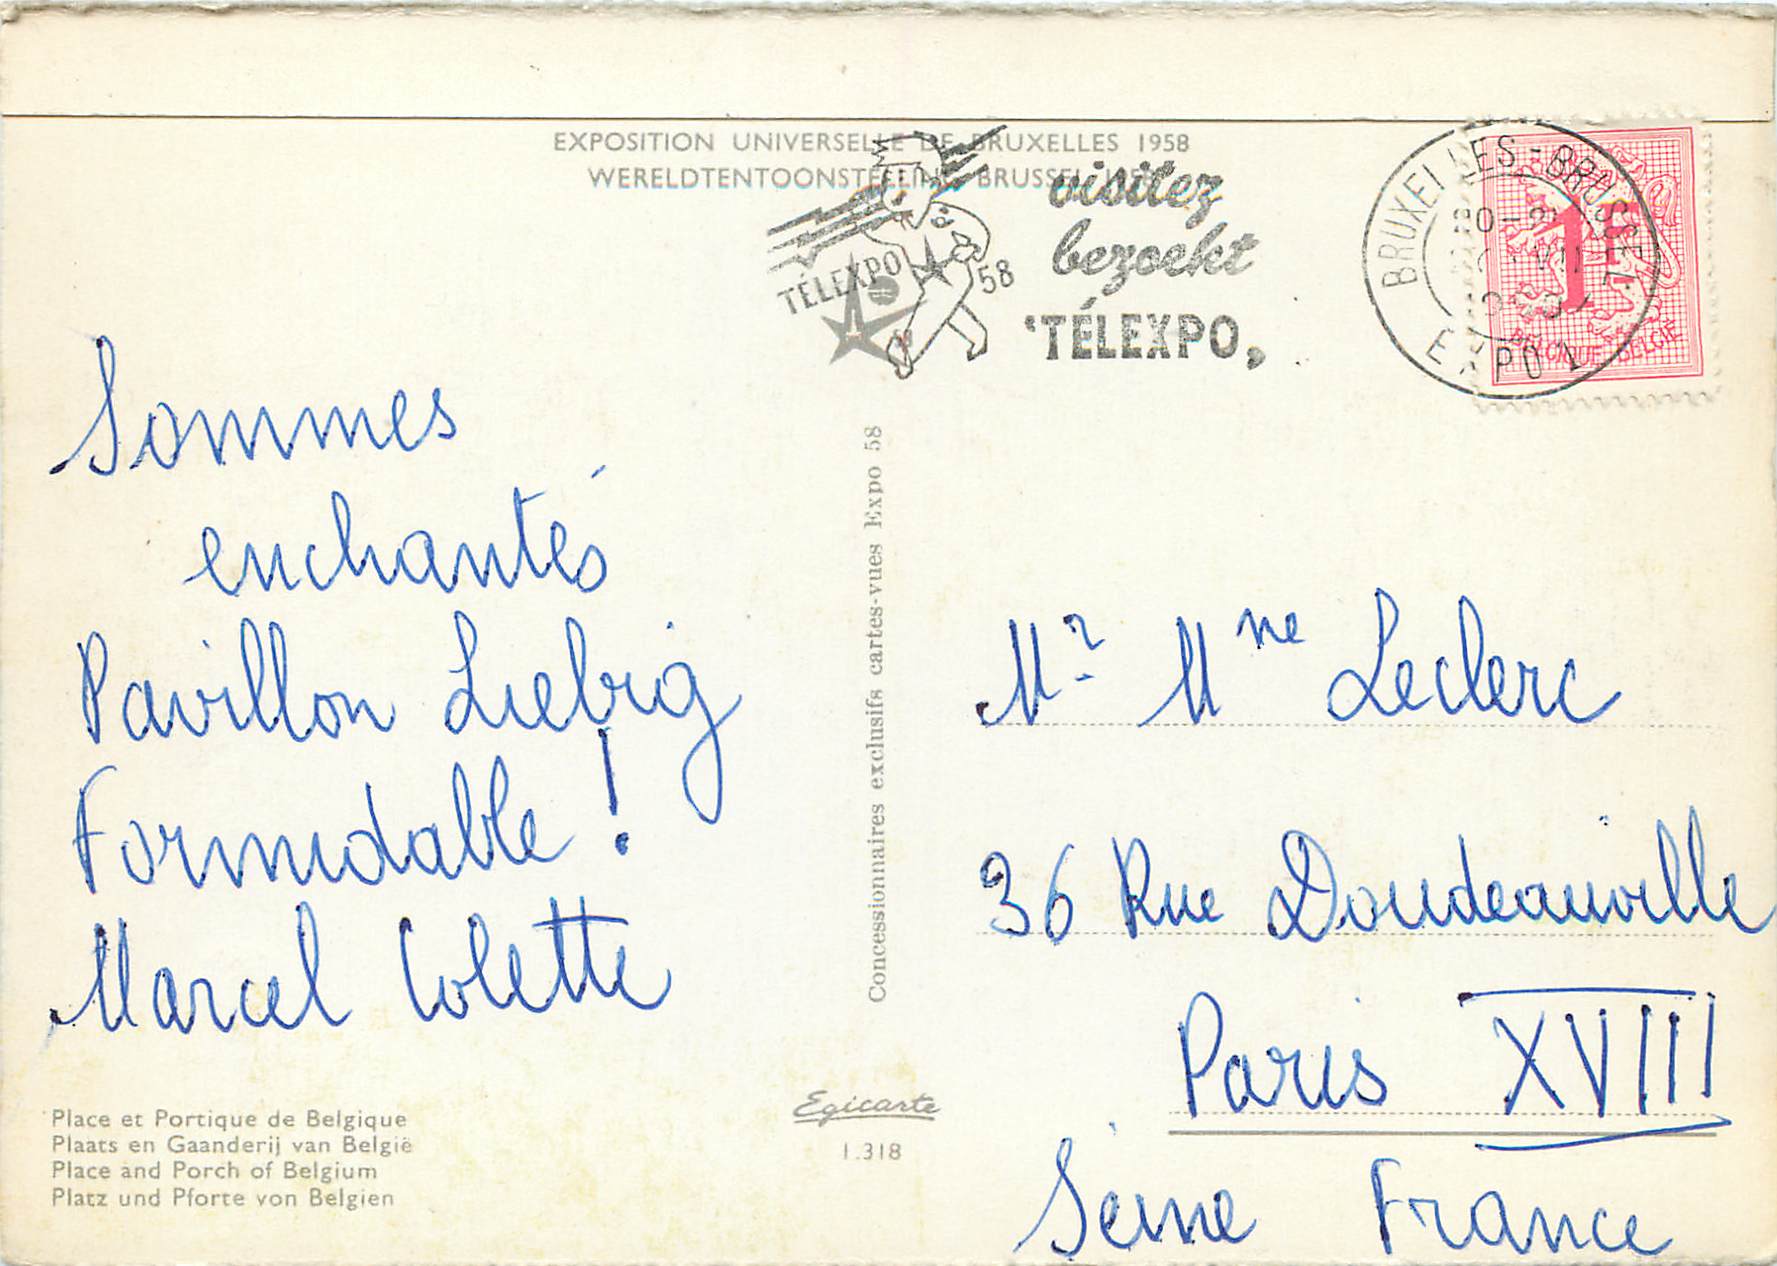 EXPOSITION UNIVERSELLE DE BRUXELLES 1958
WERELDTENTOONSTELLING BRUSSEL
TÉLEXPO 58
visitez
bezoekt
'TÉLEXPO,
BRUXELLES-BRUSSEL
EXPO 1
1F
BELGIQUE-BELGIË
Sommes
enchantés
Pavillon Liebig
Formidable !
Marcel Colette
Concessionnaires exclusifs cartes-vues Expo 58
Mr. Mme Leclerc
36 Rue Doudeauville
Paris XVIII
Seine France
Place et Portique de Belgique
Plaats en Gaanderij van België
Place and Porch of Belgium
Platz und Pforte von Belgien
Egicarte
1.318